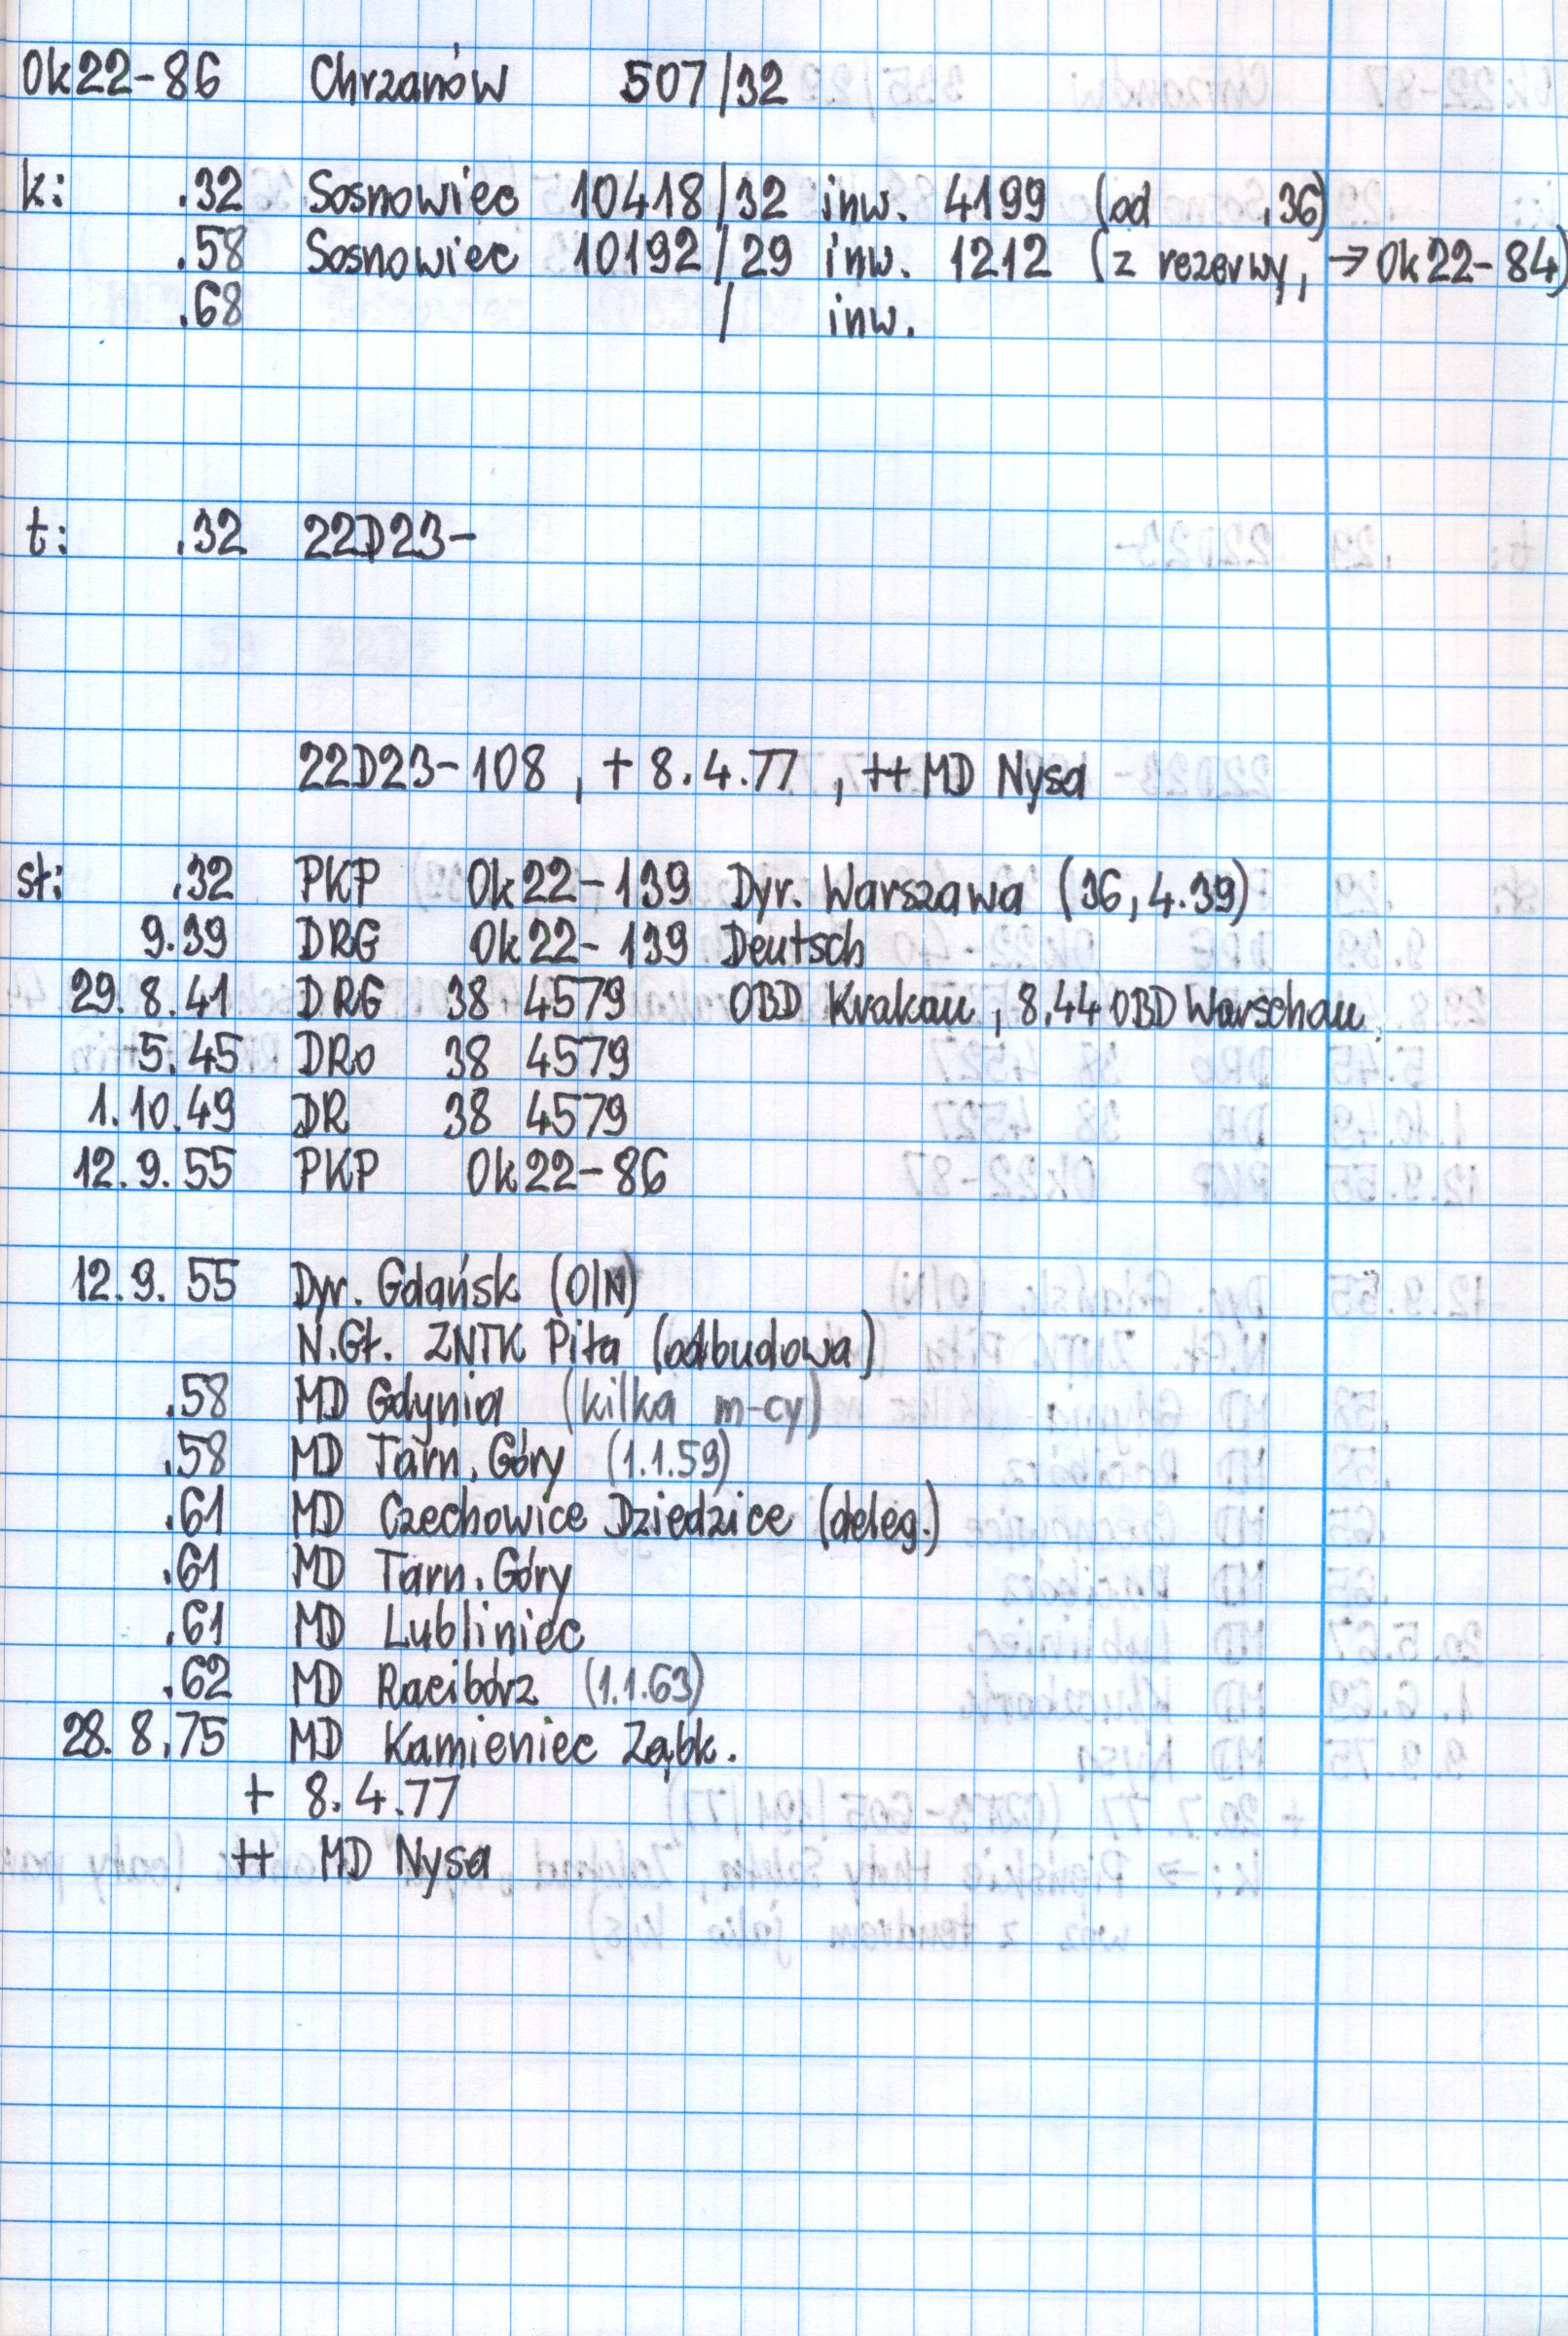 Ok22-86 Chrzanów 507/32
k: .32 Sosnowiec 10418/32 inw. 4199 (od .36)
.58 Sosnowiec 10192/29 inw. 1212 (z rezerwy, → Ok22-84)
.68 / inw.
t: .32 22D23-
22D23-108, + 8.4.77, ++ MD Nysa
sł: .32 PKP Ok22-139 Dyr. Warszawa (36, 4.39)
9.39 DRG Ok22-139 Deutsch
29.8.41 DRG 38 4579 OBD Krakau, 8.44 OBD Warschau
5.45 DRo 38 4579
1.10.49 DR 38 4579
12.9.55 PKP Ok22-86
12.9.55 Dyr. Gdańsk (O/N)
N.Gł. ZNTK Piła (odbudowa)
.58 MD Gdynia (kilka m-cy)
.58 MD Tarn. Góry (1.1.59)
.61 MD Czechowice Dziedzice (deleg.)
.61 MD Tarn. Góry
.61 MD Lubliniec
.62 MD Racibórz (1.1.63)
28.8.75 MD Kamieniec Ząbk.
+ 8.4.77
++ MD Nysa